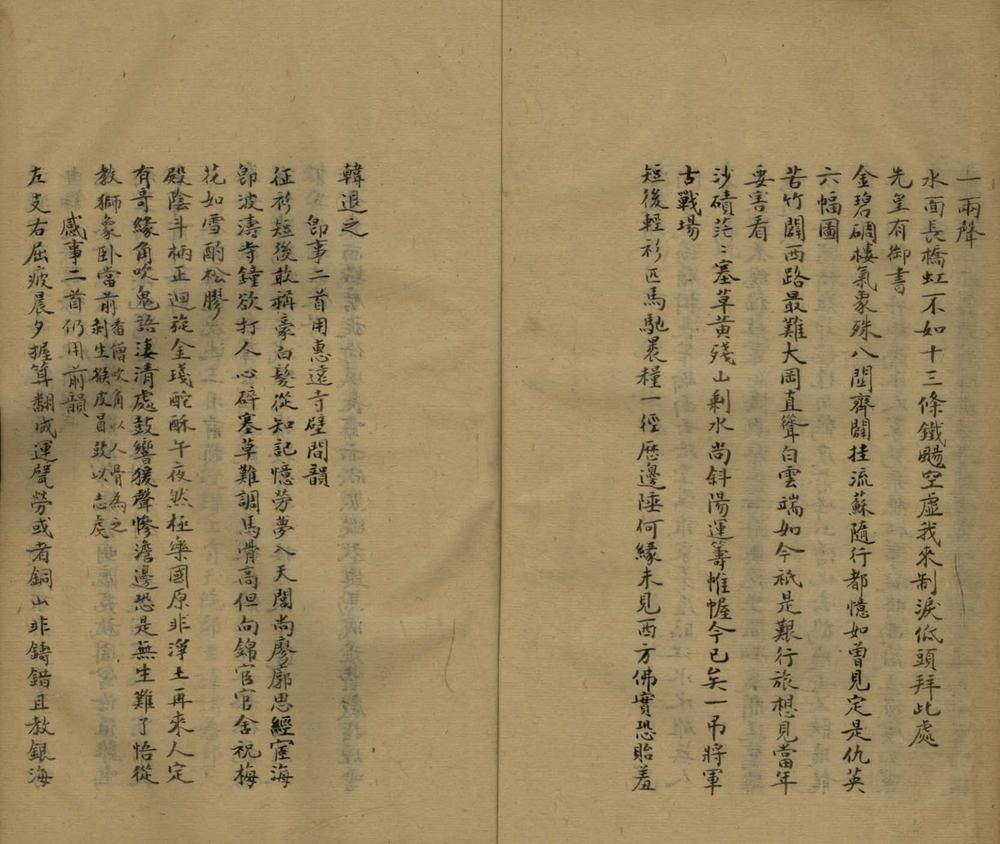 一兩聲
水面長橋虹不如十三條鐵颺空虛我來制淚低頭拜此處
先皇有御書
金碧碉樓氣象殊八閶齊闢挂流蘇隨行都憶如曾見定是仇英
六幅圖
苦竹關西路最難大岡直聳白雲端如今祇是艱行旅想見當年
要害看
沙磧茫〻塞草黃殘山剩水尚斜陽運籌帷幄今已矣一吊將軍
古戰場
短後輕衫匹馬馳褁糧一徑歷邊陲何緣未見西方佛實恐貽羞
韓退之
卽事二首用惠遠寺壁間韻
征衫短後敢稱豪白髮從知記憶勞夢入天閶尚廖廓思經宦海
卽波濤寺鐘欲打人心碎塞草難調馬骨高但向錦官官舍祝梅
花如雪酌松膠
殿陰斗柄正迴旋金琖酡酥午夜然極樂國原非淨土再來人定
有哥緣角吹鬼語淒清處鼓響猨聲慘澹邊恐是無生難了悟從
教獅象卧當前番僧吹角以人骨為之
剝生猴皮冒鼓以志虔
感事二首仍用前韻
左支右屈疲晨夕握算翻成運甓勞或者銅山非鑄錯且教銀海